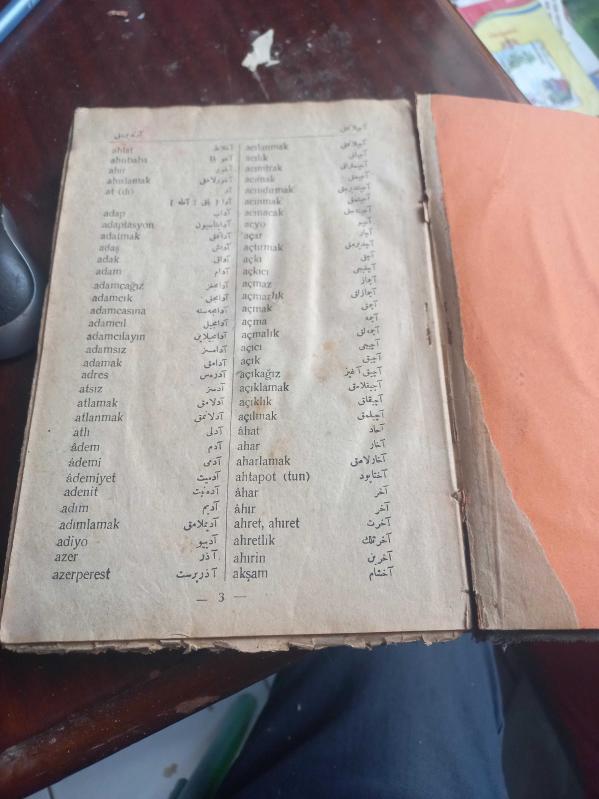 acılanmak آجیلانمق
acılık آجیلق
acımtrak
acımak آجیمق
acındırmak آجیندیرمق
acınmak آجینمق
acınacak
acyo آجیو
açar آچار
açtırmak آچدیرمق
açkı آچقی
açkıcı آچقیجی
açmaz آچماز
açmazlık آچمازلق
açmak آچمق
açma آچمه
açmalık آچمه‌لق
açıcı آچیجی
açık آچیق
açıkağız آچیق آغیز
açıklamak آچیقلامق
açıklık آچیقلق
açılmak آچیلمق
âhat آحاد
ahar آخار
aharlamak آخارلامق
ahtapot (tun) آختاپود
âhar آخر
âhır آخر
ahret, ahıret آخرت
ahretlik آخرتلك
ahırin آخرین
akşam آخشام
ahlat آخلاط
ahubaba آخو بابا
ahır آخور
ahırlamak آخورلامق
at (dı) آد
adap آداب
adaptasyon آداپتاسیون
adatmak آداتمق
adaş آداش
adak آداق
adam آدام
adamcağız آدامجغز
adamcık آدامجق
adamcasına آدامجه‌سنه
adamcıl آدامجیل
adamcılayın آدامجیلاین
adamsız آدامسز
adamak آدامق
adres آدره‌س
atsız آدسز
atlamak آدلامق
atlanmak آدلانمق
atlı آدلی
âdem آدم
âdemi آدمی
âdemiyet آدمیت
adenit آده‌نیت
adım آدیم
adımlamak آدیملامق
adiyo آدییو
azer آذر
azerperest آذرپرست
— 3 —